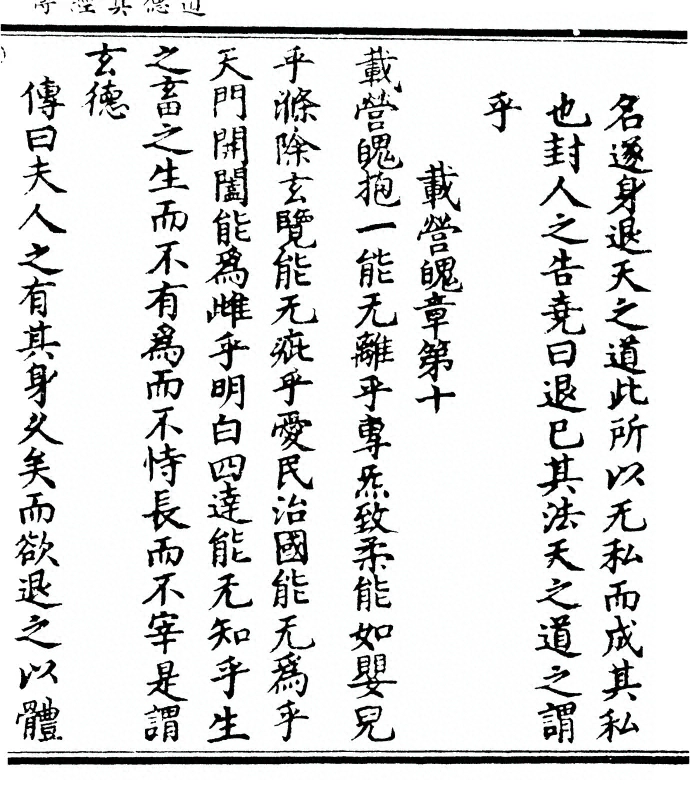 名遂身退天之道此所以无私而成其私
也封人之告堯曰退已其法天之道之謂
乎
載營魄章第十
載營魄抱一能无離乎專炁致柔能如嬰兒
乎滌除玄覽能无疵乎愛民治國能无爲乎
天門開闔能爲雌乎明白四達能无知乎生
之畜之生而不有爲而不恃長而不宰是謂
玄德
傳曰夫人之有其身久矣而欲退之以體